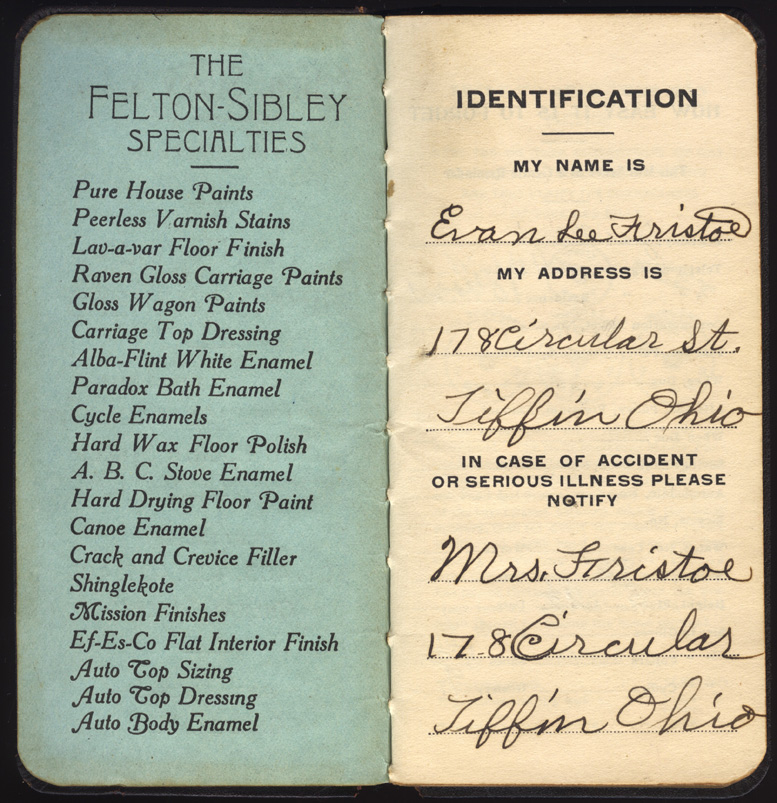 THE
FELTON-SIBLEY
SPECIALTIES
Pure House Paints
Peerless Varnish Stains
Lav-a-var Floor Finish
Raven Gloss Carriage Paints
Gloss Wagon Paints
Carriage Top Dressing
Alba-Flint White Enamel
Paradox Bath Enamel
Cycle Enamels
Hard Wax Floor Polish
A. B. C. Stove Enamel
Hard Drying Floor Paint
Canoe Enamel
Crack and Crevice Filler
Shinglekote
Mission Finishes
Ef-Es-Co Flat Interior Finish
Auto Top Sizing
Auto Top Dressing
Auto Body Enamel
IDENTIFICATION
MY NAME IS
Evan Lee Firistoe
MY ADDRESS IS
178 Circular St.
Tiffin Ohio
IN CASE OF ACCIDENT
OR SERIOUS ILLNESS PLEASE
NOTIFY
Mrs. Firistoe
178 Circular
Tiffin Ohio